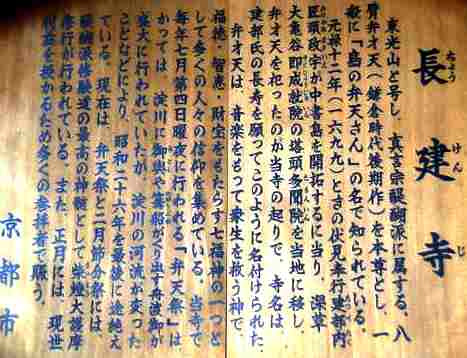 長建寺
ちょうけんじ
東光山と号し、真言宗醍醐派に属する。八
臂弁才天(鎌倉時代後期作)を本尊とし、一
般に「島の弁天さん」の名で知られている。
元禄十二年(一六九九)ときの伏見奉行建部内
匠頭政宇が中書島を開拓するに当り、深草
大亀谷即成就院の塔頭多聞院を当地に移し、
弁才天を祀ったのが当寺の起りで、寺名は、
建部氏の長寿を願ってこのように名付けられた。
弁才天は、音楽をもって衆生を救う神で、
福徳・智恵・財宝をもたらす七福神の一つと
して多くの人々の信仰を集めている。当寺で
毎年七月第四日曜夜に行われる「弁天祭」は、
かつては、淀川に御輿や篝船がくり出す舟渡御が
盛大に行われていたが、淀川の河流が変った
ことなどにより、昭和二十六年を最後に途絶え
ている。現在は、弁天祭と二月節分祭には、
醍醐派修験道の最高の神髄として柴燈大護摩
修行が行われている。また、正月には、現世
利益を授かるため多くの参拝者で賑う。
京都市